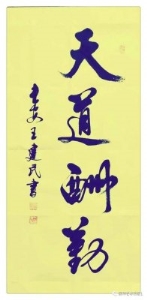 天道酬勤
王建民書